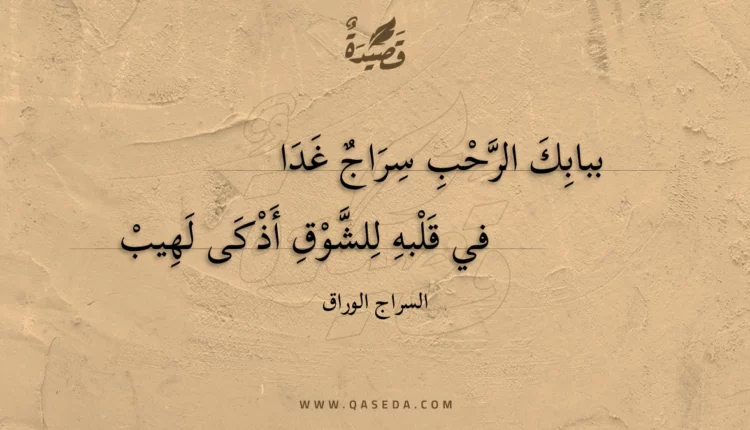 قَصِيْدَةٌ
ببابِكَ الرَّحْبِ سِرَاجٌ غَدَا
في قَلْبهِ لِلشَّوْقِ أَذْكَى لَهِيبْ
السراج الوراق
WWW.QASEDA.COM